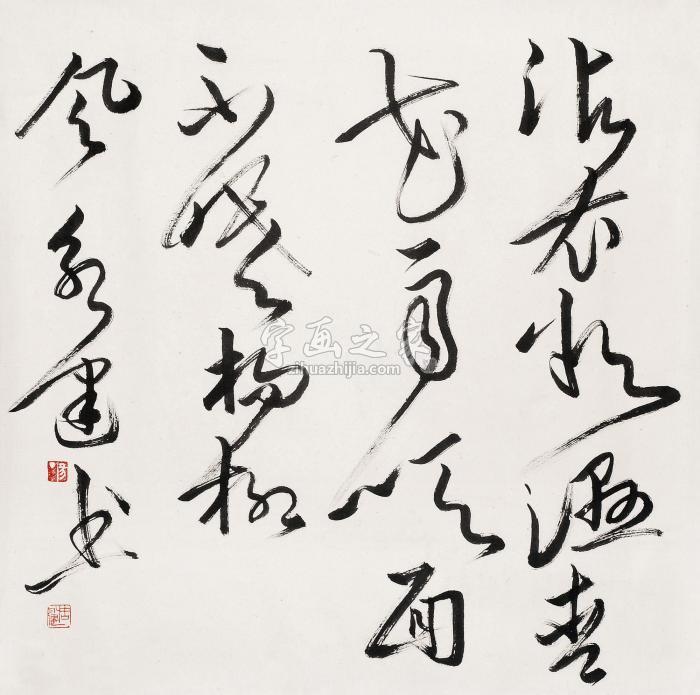 沾衣欲湿杏
花雨吹面
不寒杨柳
风 建书
字画之家
zihuazhijia.com